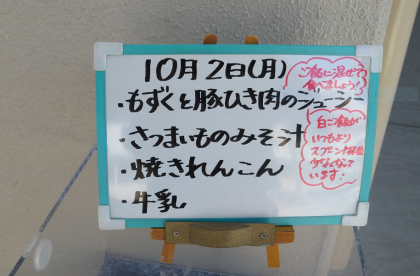 10月2日(月)
・もずくと豚ひき肉のジューシー
・さつまいものみそ汁
・焼きれんこん
・牛乳
ご飯に混ぜて
食べましょう!
白ご飯が
いつもより
スプーン1杯
少なくなって
います!